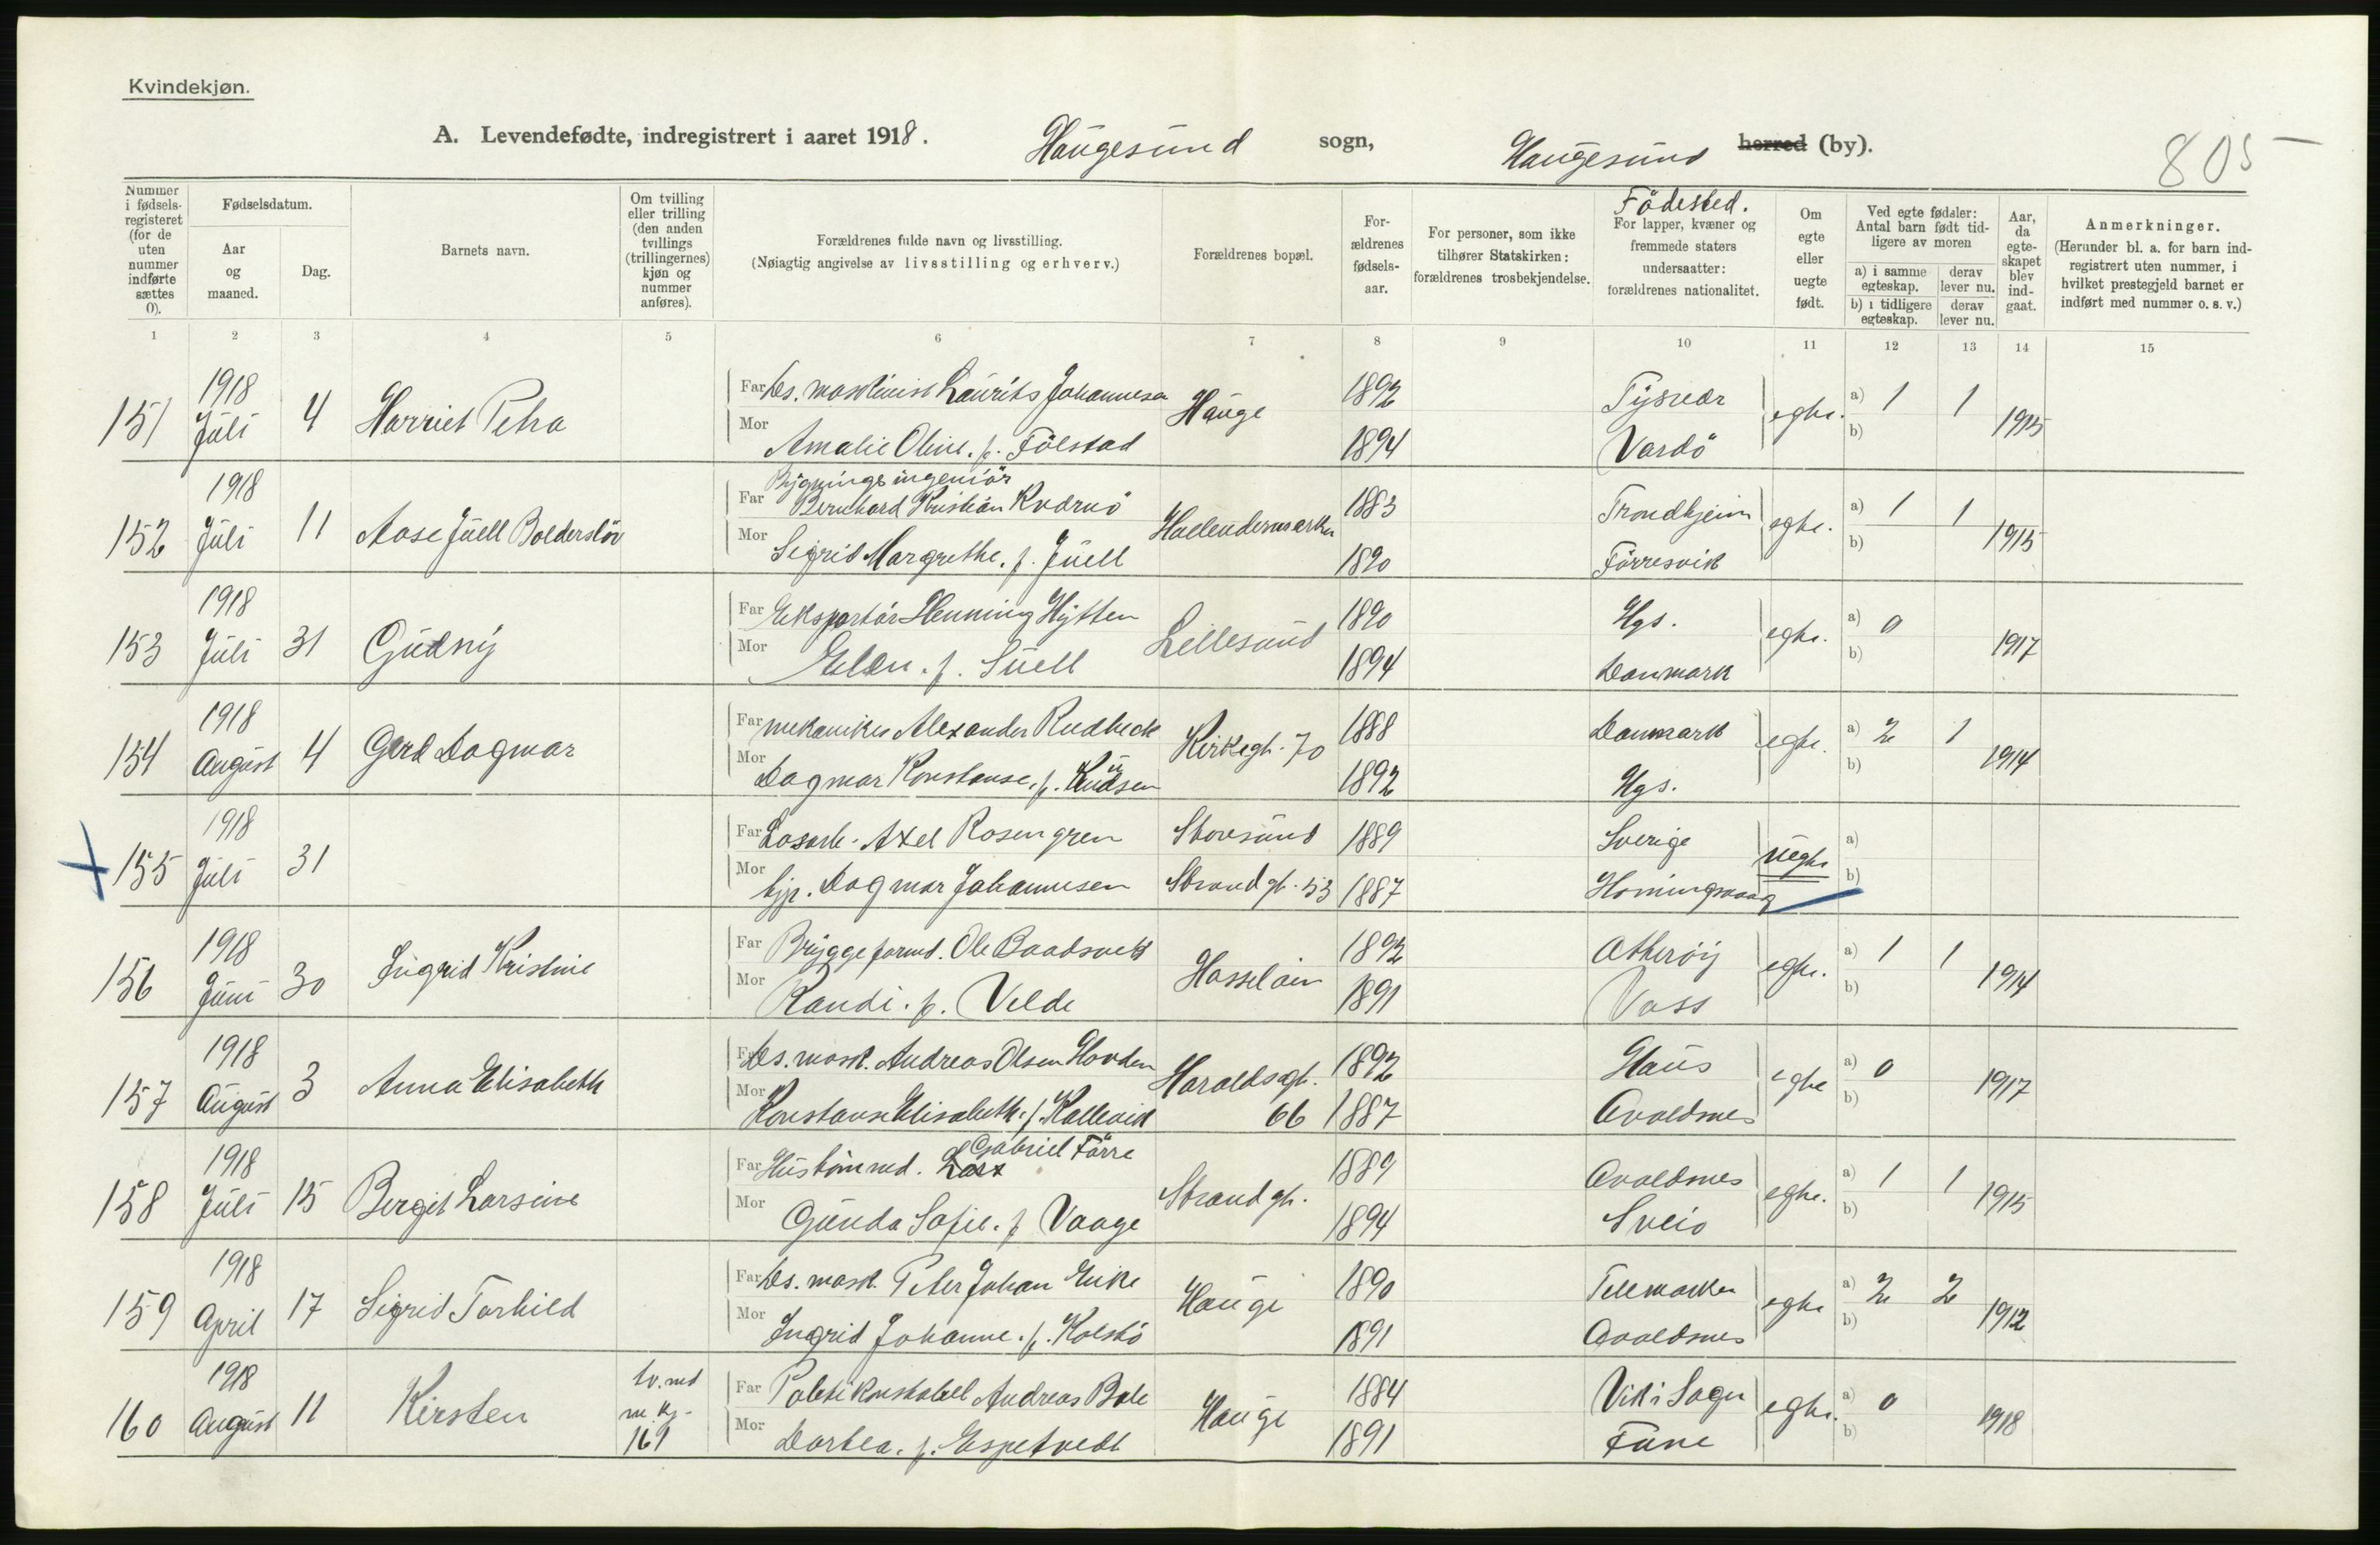 Kvindekjøn.
A. Levendefødte, indregistrert i aaret 1918. Haugesund sogn, Haugesund herred (by).
805
Nummer i fødselsregisteret (for de uten nummer indførte sættes 0).
Fødselsdatum.
Aar og maaned.
Dag.
Barnets navn.
Om tvilling eller trilling (den anden tvillings (trillingernes) kjøn og nummer anføres).
Forældrenes fulde navn og livsstilling.
(Nøiagtig angivelse av livsstilling og erhverv.)
Forældrenes bopæl.
Forældrenes fødselsaar.
For personer, som ikke tilhører Statskirken: forældrenes trosbekjendelse.
Födested.
For lapper, kvæner og fremmede staters undersaatter: forældrenes nationalitet.
Om egte eller uegte født.
Ved egte fødsler: Antal barn født tidligere av moren
a) i samme egteskap.
b) i tidligere egteskap.
derav lever nu.
derav lever nu.
Aar, da egteskapet blev indgaat.
Anmerkninger.
(Herunder bl. a. for barn indregistrert uten nummer, i hvilket prestegjeld barnet er indført med nummer o. s. v.)
1 2 3 4 5 6 7 8 9 10 11 12 13 14 15
1918 Far Ds. maskinist Laurits Johannesen 1892 Tysvær a) 1 1
151 Juli 4 Harriet Petra Hauge egte. 1915
Mor Amalie Oline. f. Fölstad 1894 Vardö b)
1918 Bygningsingeniör
Far Bernhard Kristian Kvdrnö 1883 Trondhjeim a) 1 1
152 Juli 11 Aase Juell Bolderslöv Hollendermarken egte. 1915
Mor Sigrid Margrethe. f. Juell 1890 Förresvik b)
1918 Far Ekspartör Henning Hytten 1890 Hgs. a) 0
153 Juli 31 Gudny Lillesund egte. 1917
Mor Ellen. f. Suell 1894 Danmark b)
1918 Far mekaniker Alexander Rudbeck 1888 Danmark a) 2 1
154 August 4 Gerd Dagmar Kirkegt. 70 egte. 1914
Mor Dagmar Konstanse. f. Knudsen 1892 Hgs. b)
1918 Far Losarb. Axel Rosengren Storesund 1889 Sverige a)
155 Juli 31 uegte
Mor hjp. Dagmar Johannesen Strandgt. 53 1887 Honningsvaag b)
1918 Far Bryggeformd. Ole Baadsvik 1892 Atheröy a) 1 1
156 Juni 30 Ingrid Kristine Hasseløen egte. 1914
Mor Randi. f. Velde 1891 Voss b)
1918 Far Ds. mask. Andreas Olsen Hovden 1892 Haus a) 0
157 August 3 Anna Elisabeth Haraldsgt. 66 egte 1917
Mor Konstanse Elisabeth. f. Kallevik 1887 Avaldsnes b)
1918 Far Hustömmed. Lars Gabriel Förre 1889 Avaldsnes a) 1 1
158 Juli 15 Bergit Larsine Strandgt. egte. 1915
Mor Gunda Sofie. f Vaage 1894 Sveio b)
1918 Far Ds. mask. Peter Johan Eike 1890 Telemarken a) 2 2
159 April 17 Sigrid Torhild Hauge egte 1912
Mor Ingrid Johanne. f. Kolstö 1891 Avaldsnes b)
1918 tv. med Far Politikonstabel Andreas Bale 1884 Vik i Sogn a) 0
160 August 11 Kirsten m. kj. 161 Hauge egte. 1918
Mor Dortea. f. Espetvedt 1891 Fane b)